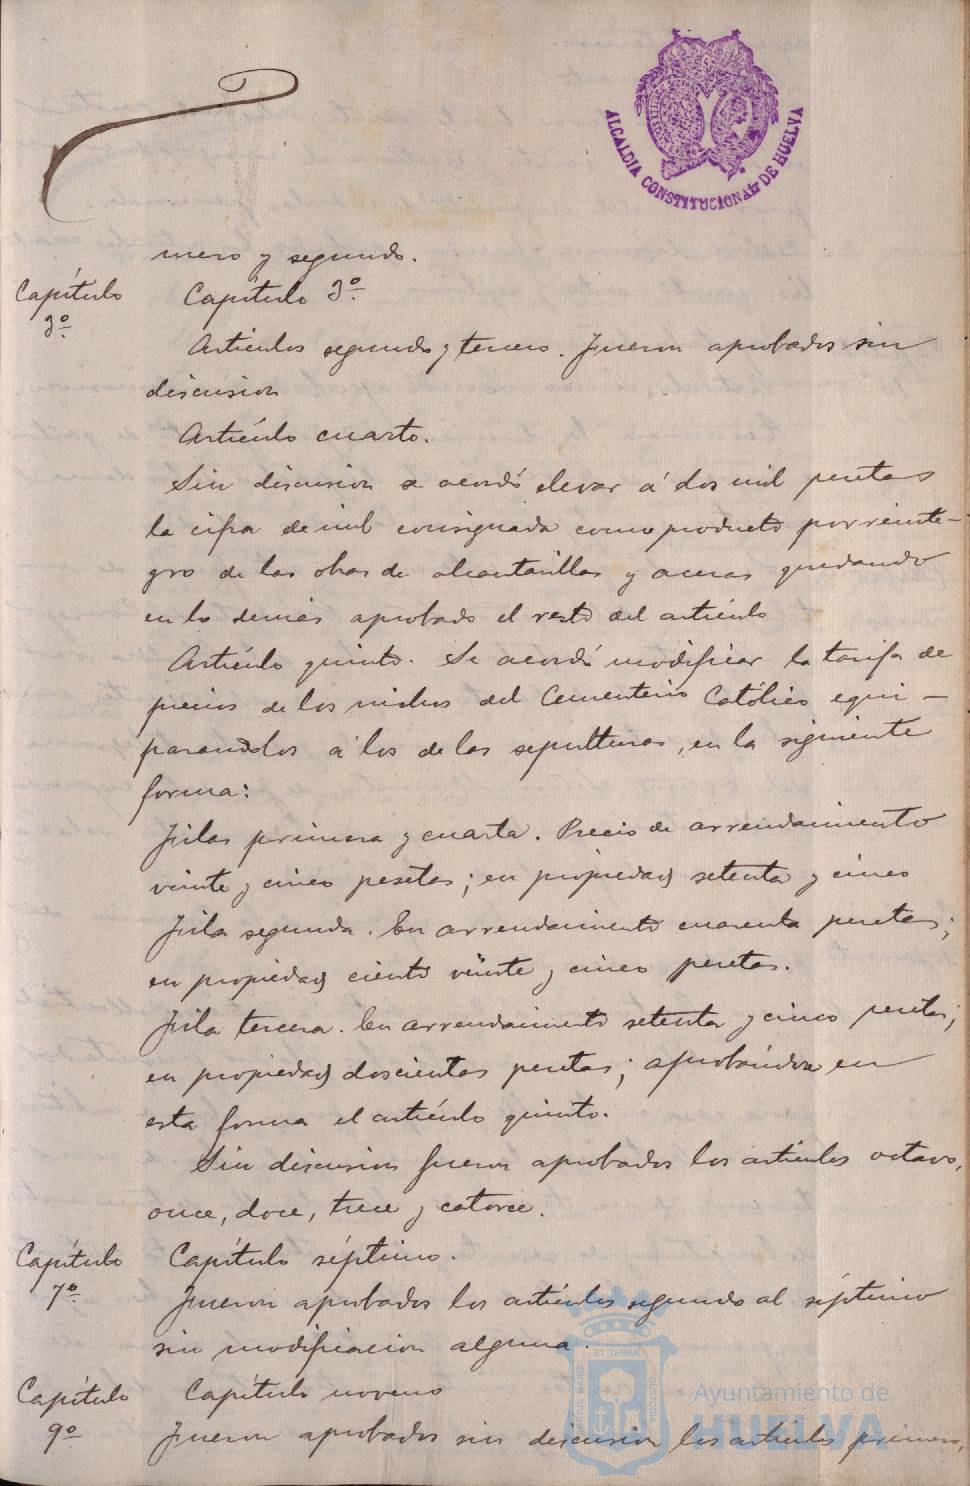 ALCALDIA CONSTITUCIONAL DE HUELVA
mero y segundo.
Capítulo
3º
Capítulo 3º
Articulos segundo y tercero. Fueron aprobados sin
discusion
Artículo cuarto.
Sin discusion se acordó elevar á dos mil pesetas
la cifra de mil consignada como producto por reinte-
gro de las obras de alcantarillas y aceras quedando
en lo demás aprobado el resto del artículo
Artículo quinto. Se acordó modificar la tarifa de
precios de los nichos del Cementerio Católico equi-
parandolos á los de las sepulturas, en la siguiente
forma:
Filas primera y cuarta. Precio de arrendamiento
veinte y cinco pesetas; en propiedad setenta y cinco
Fila segunda. En arrendamiento cuarenta pesetas;
en propiedad ciento veinte y cinco pesetas.
Fila tercera. En arrendamiento setenta y cinco pesetas;
en propiedad doscientas pesetas; aprobándose en
esta forma el artículo quinto.
Sin discusion fueron aprobados los articulos octavo,
once, doce, trece y catorce.
Capítulo
7º
Capítulo séptimo.
Fueron aprobados los artículos segundo al séptimo
sin modificacion alguna.
Capítulo
9º
Capítulo noveno
Fueron aprobados sin discusion los articulos primero,
Ayuntamiento de
HUELVA